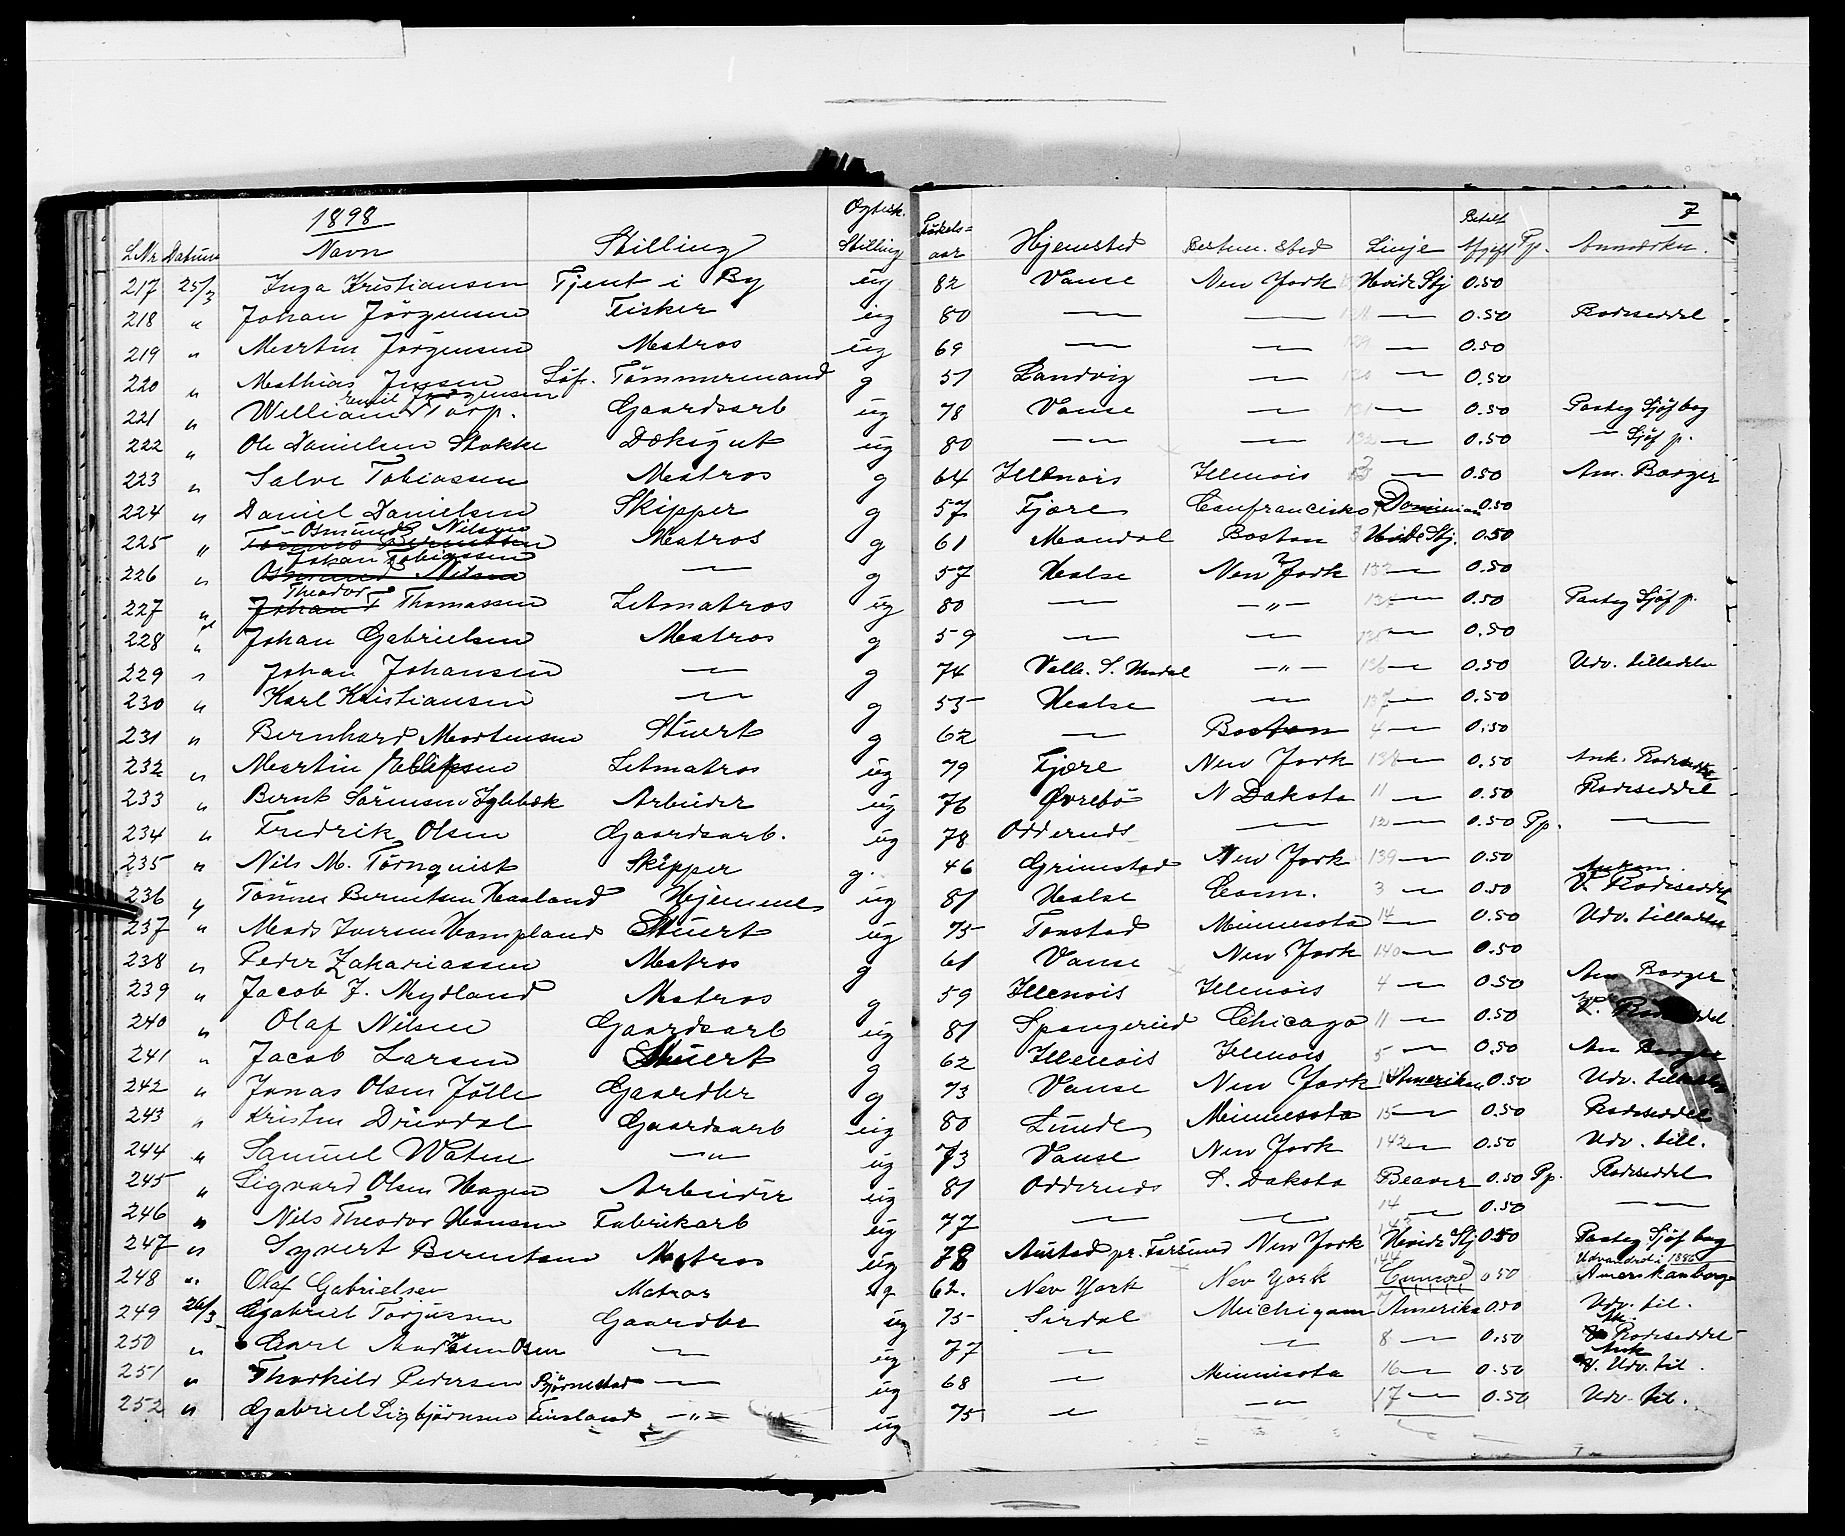 1898 7
L.Nr Datum Navn Stilling Ogtesk. Stilling Födselsaar Hjemsted Bestem. Sted Linje Betalt Afgift Pp. Anmerkn.
217 25/3 Inga Kristiansen Tjent i By ug 82 Vanse New York Hvide Stj 0.50
218 " Johan Jörgensen Fisker ug 80 — — — 0.50 Rodeseddel
219 " Martin Jörgensen Matros ug 69 — — — 0.50
220 " Mathias Jensen Söf. Tömmermand g 51 Landvig — — 0.50
221 " William Emil Jörgensen Torp. Gaardsarb ug 78 Vanse — — 0.50 Pasteg Sjöf bog
222 " Ole Danielsen Stokke Dæksgut ug 80 — — — 0.50 — Sjöf p.
223 " Salve Tobiassen Matros g 64 Illenois Illenois — 0.50 Am. Borger
224 " Daniel Danielsen Skipper g 57 Fjære Sanfrancisko Dominion 0.50
225 " Tönnes Berentsen Osmund Nilsen Matros g 61 Mandal Boston 3 Hvide Stj. 0.50
226 " Osmund Nilsen Johan Tobiassen — g 57 Halse New York 133 — 0.50
227 " Johan T Theodor Thomassen Letmatros ug 80 — —"— — 0.50 Pasteg Sjöf p.
228 " Johan Gabrielsen Matros g 59 — — — 0.50
229 " Johan Johansen — g 74 Valle S. Undal —"— 136 — 0.50 Udv. tilladelse
230 " Karl Kristiansen — g 55 Halse — 137 — 0.50
231 " Bernhard Mortensen Stuert g 62 — Boston 4 — 0.50
232 " Martin Ellefsen Letmatros ug 79 Fjære New York 138 — 0.50 Ank. Rodeseddel
233 " Bernt Sörensen Iglebæk Arbeider ug 76 Øvrebö N Dakota 11 — 0.50 Rodeseddel
234 " Fredrik Olsen Gaardsarb. ug 78 Oddernes — 12 — 0.50 Pp. —
235 " Nils M. Törnquist Skipper g. 46 Grimstad New York 139 — 0.50
236 " Tönnes Berentsen Haaland Hjemme ug 81 Halse Conn. 3 — 0.50 V. Rodeseddel
237 " Mads Iversen Hompland Stuert ug 75 Tonstad Minnesota 14 — 0.50 Udv. tilladelse
238 " Peder Zakariassen Matros g 61 Vanse New York 140 — 0.50
239 " Jacob J. Mydland Matros g 59 Illenois Illenois 4 — 0.50 Am Borger
240 " Olaf Nilsen Gaardsarb ug 81 Spangereid Chicago 11 — 0.50
241 " Jacob Larsen Stuert g 62 Illenois Illenois 5 — 0.50 Am Borger
242 " Jonas Olsen Jölle Gaardbr g 73 Vanse New York Amerikan 0.50 Udv. tilladelse
243 " Kristen Drivdal Gaardsarb ug 80 Lunde Minnesota 15 — 0.50 Rodeseddel
244 " Samuel Waten —"— ug 73 Vanse New York 142 — 0.50 Udv. till.
245 " Sigvard Olsen Hagen Arbeider ug 81 Oddernes S. Dakota Beaver 0.50 Pp. Rodeseddel
246 " Nils Theodor Hansen Fabrikarb ug 77 — — 14 — 0.50 —
247 " Sigvert Berentsen Matros ug 78 Austad pr. Farsund New York 143 Hvide Stj 0.50 Pasteg Sjöf bog
248 " Olaf Gabrielsen Matros g 62. New York New York 144 Cunard 0.50 Udvandret i 1886 Amerikanborger
249 26/3 Gabriel Torjusen Gaardbr ug 75 Sirdal Michigan Amerika 0.50 Udv. til.
250 " Carl Andersen Osen — ug 77 — — 8 — 0.50 Rodeseddel
251 " Thorkild Pedersen Bjørnestad — ug 68 — Minnisota 16 — 0.50 Ank V. Udv. til.
252 " Gabriel Sigbjörnsen Finsland —"— ug 75 — —"— 17 — 0.50 Udv. til.